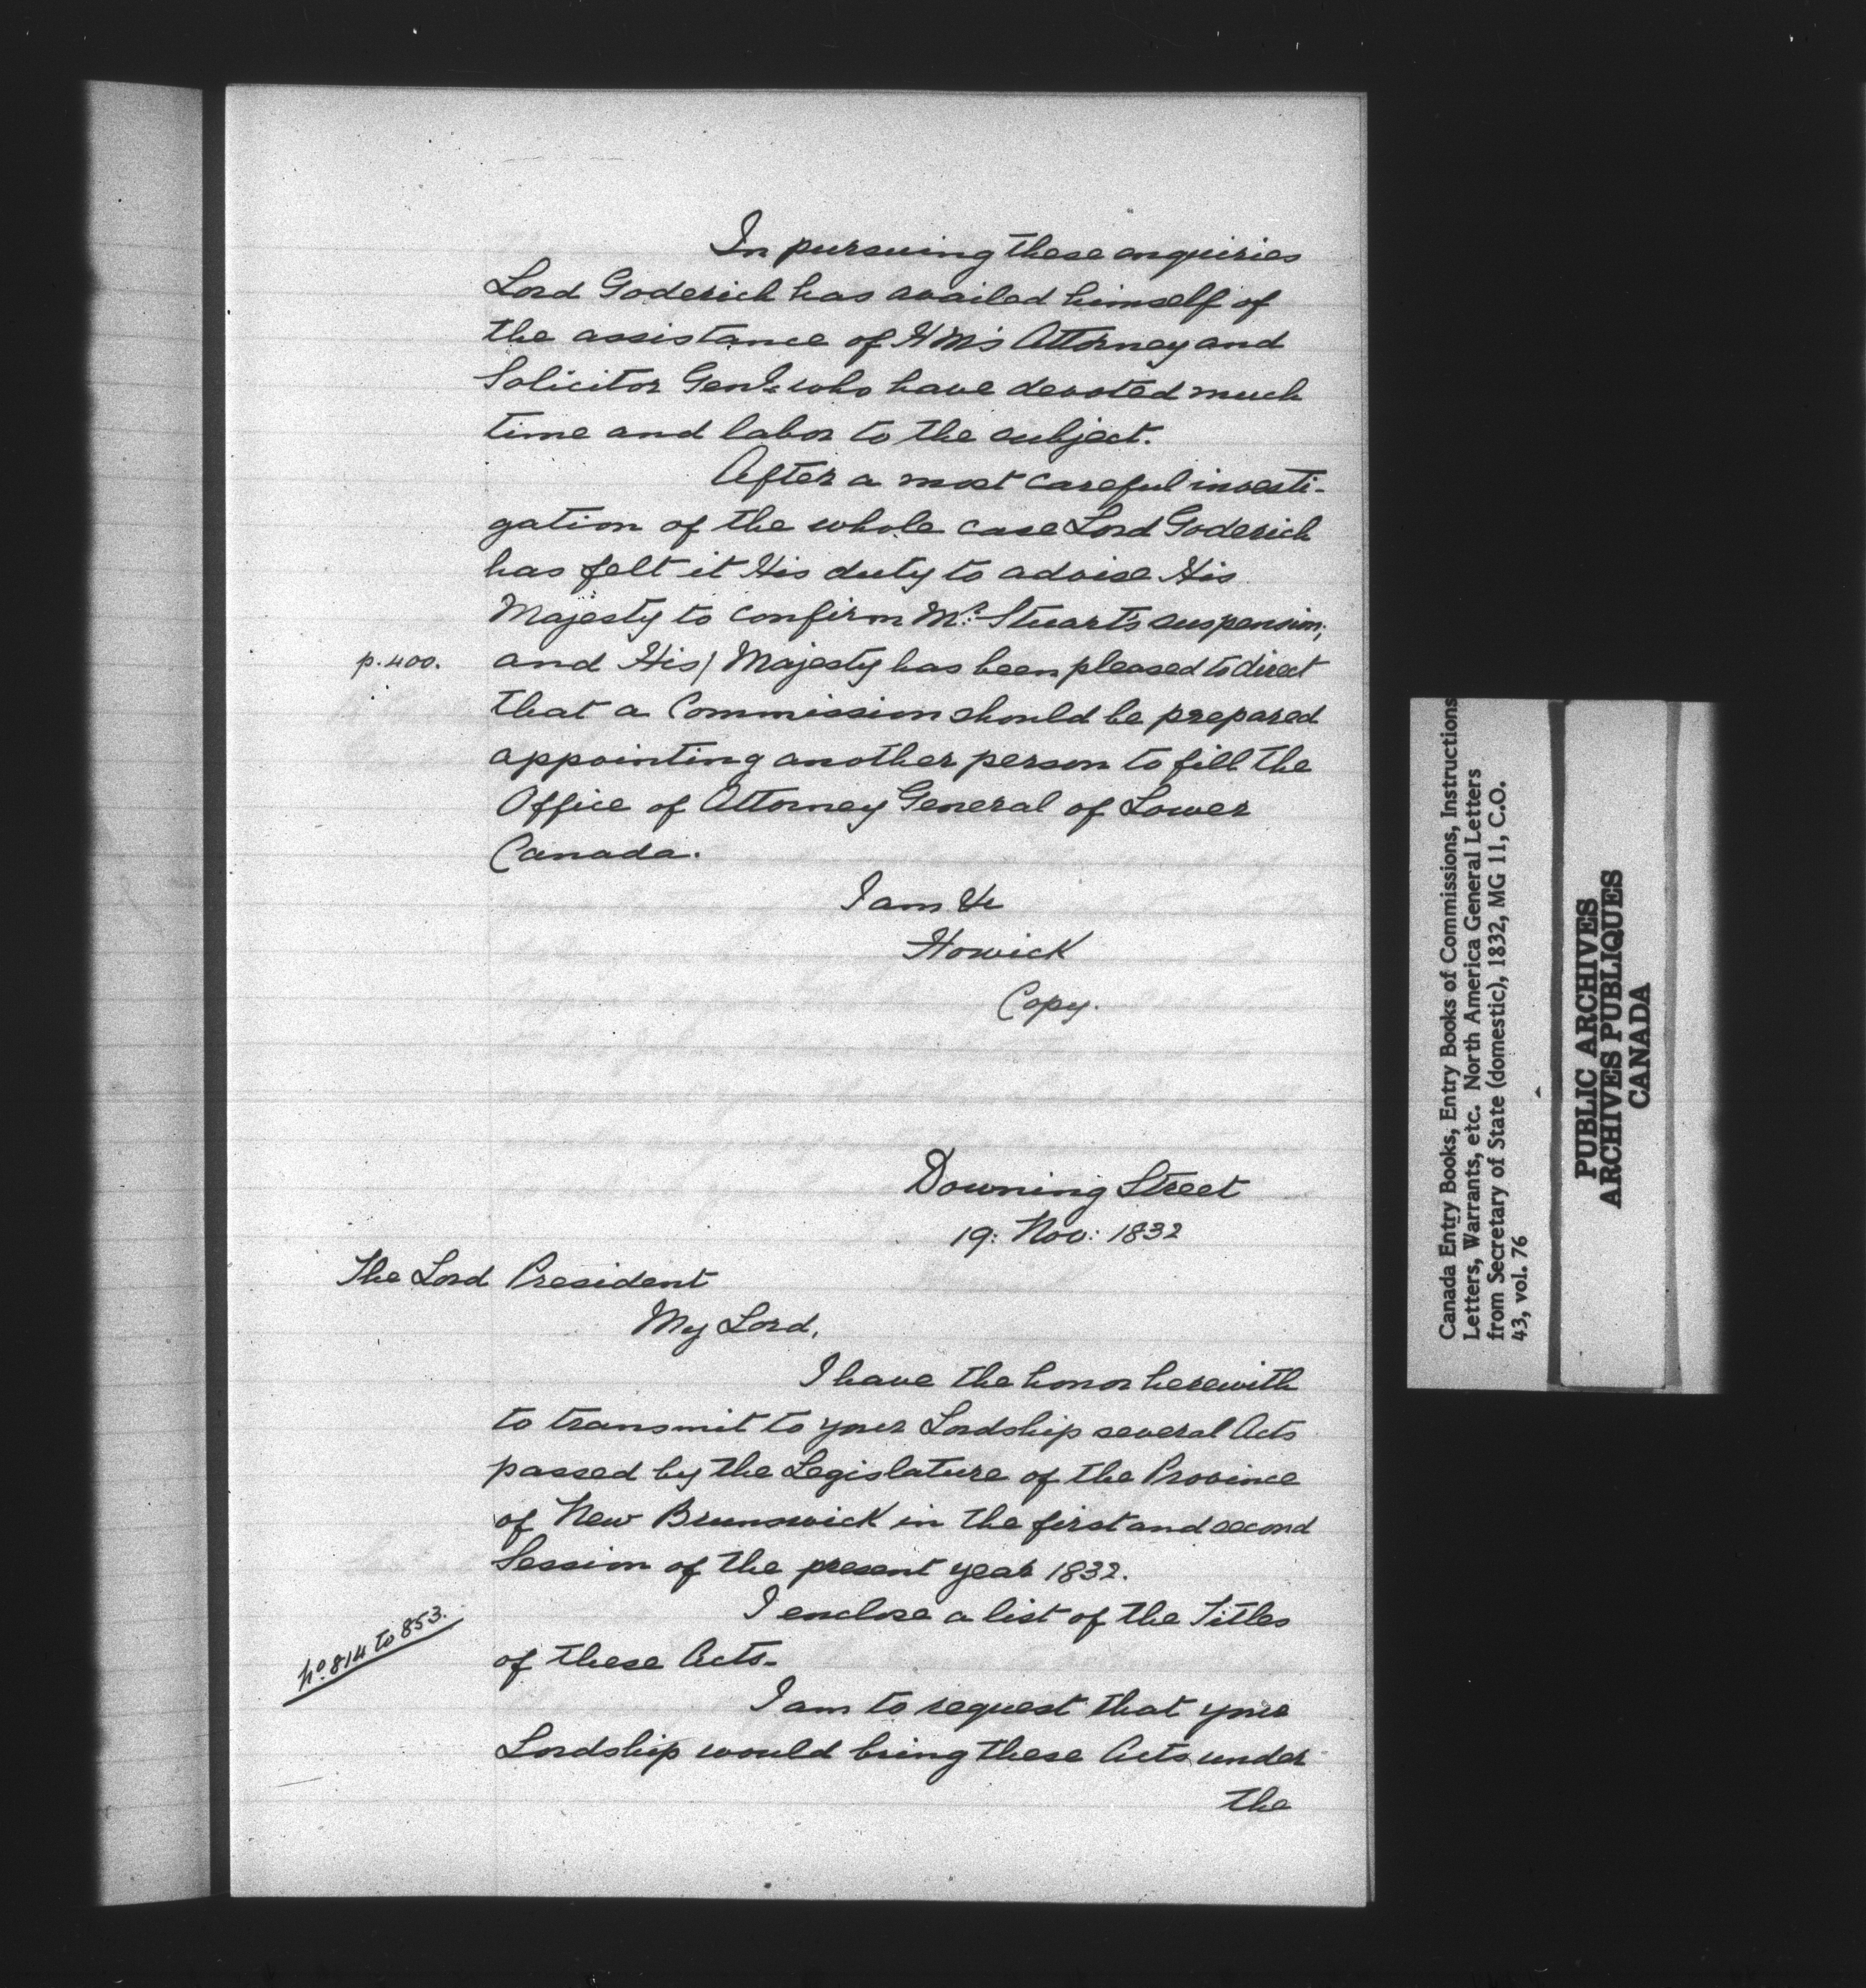 In pursuing these enquiries
Lord Goderich has availed himself of
the assistance of HM's Attorney and
Solicitor Genl. who have devoted much
time and labor to the subject.
After a most careful investi-
gation of the whole case Lord Goderich
has felt it His duty to advise His
Majesty to confirm Mr. Stuart's suspension;
p. 400. and His/ Majesty has been pleased to direct
that a Commission should be prepared
appointing another person to fill the
Office of Attorney General of Lower
Canada.
I am &c
Howick
Copy.
Downing Street
19: Nov: 1832
The Lord President
My Lord,
I have the honor herewith
to transmit to your Lordship several Acts
passed by the Legislature of the Province
of New Brunswick in the first and second
Session of the present year 1832.
I enclose a list of the Titles
No. 814 to 853. of these Acts.
I am to request that your
Lordship would bring these Acts under
the
Canada Entry Books, Entry Books of Commissions, Instructions
Letters, Warrants, etc. North America General Letters
from Secretary of State (domestic), 1832, MG 11, C.O.
43, vol. 76
PUBLIC ARCHIVES
ARCHIVES PUBLIQUES
CANADA